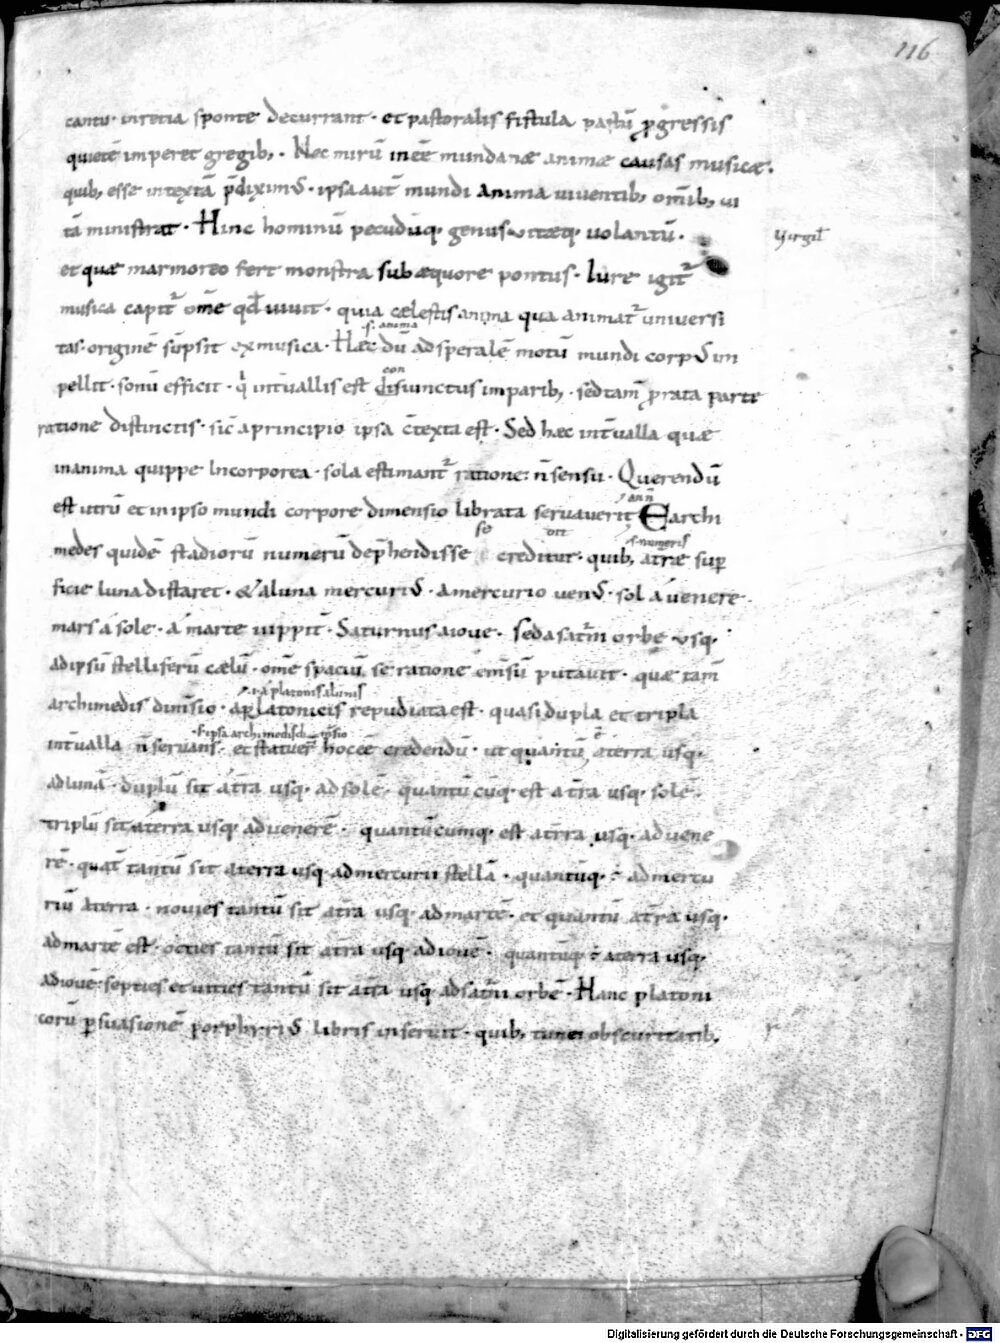 116
cantu· in retia sponte decurrant· et pastoralis fistula pastū ꝓgressis
quietē imperet gregib;· Nec mirū int̄ mundanæ animæ causas musicæ·
quib; esse intextā p̄diximꝰ· ipsa aut̄ mundi Anima viventib; om̄ib; vi
tā ministrat· Hinc hominū pecudūq· genus vitæq· volantū·
Virgil̄
et quæ marmoreo fert monstra sub æquore pontus· Iure igit᷑
musica capit᷑ om̄e qd̄ vivit· quia cælestis anima qua animat᷑ universi
tas· originē sūpsit ex musica· Hæc dū ad speralē motū mundi corpꝰ im
s· anima
pellit· sonū efficit· q̇ int̄vallis est disiunctus imparib;· sed tam̄ ꝓ rata parte
con
ratione distinctis· sic̄ a principio ipsa c̄texta est· Sed hæc int̄valla quæ
in anima quippe Incorporea· sola estimant᷑ ratione: n̄ sensu· Querendū
est utrū et in ipso mundi corpore dimensio librata servaverit Earchi
medes quidē stadiorū numerū dep̄hendisse se creditur· quib; a tr̄æ sup̲
s· numeris
ficie luna distaret· & a luna mercuriꝰ· a mercurio venꝰ· sol a venere·
mars a sole· a marte iuppit̄· Saturnus a iove· sed a saturni orbe usq·
ad ipsū stelliferū cælū· om̄e spaciū se ratione em̄sū putavit· quæ tam̄
archimedis dim̄sio· a platonicis repudiata est· quasi dupla et tripla
int̄valla n̄ servans· et statuer̄ hoc eē credendū· ut quantū ē a terra usq·
ad lunā· duplū sit a tr̄a usq· ad solē· quantū cūq· est a tr̄a usq· solē·
triplū sit a terra usq· ad venerē· quantūcumq· est a terra usq· ad vene
rē· quat̄ tantū sit a terra usq ad mercurii stellā· quantūq· ÷ ad mercu
riū a terra· novies tantū sit a tr̄a usq· ad martē· et quantū a tr̄a usq·
ad martē est· octies tantū sit a tr̄a usq· ad iovē· quantūq ÷ a terra usq·
ad iovē: septies et vicies tantū sit a tr̄a usq ad saturni orbē· Hanc platoni
corū p̲suasionē porphyriꝰ libris inseruit· quib; timei obscuritatib;
Digitalisierung gefördert durch die Deutsche Forschungsgemeinschaft - DFG